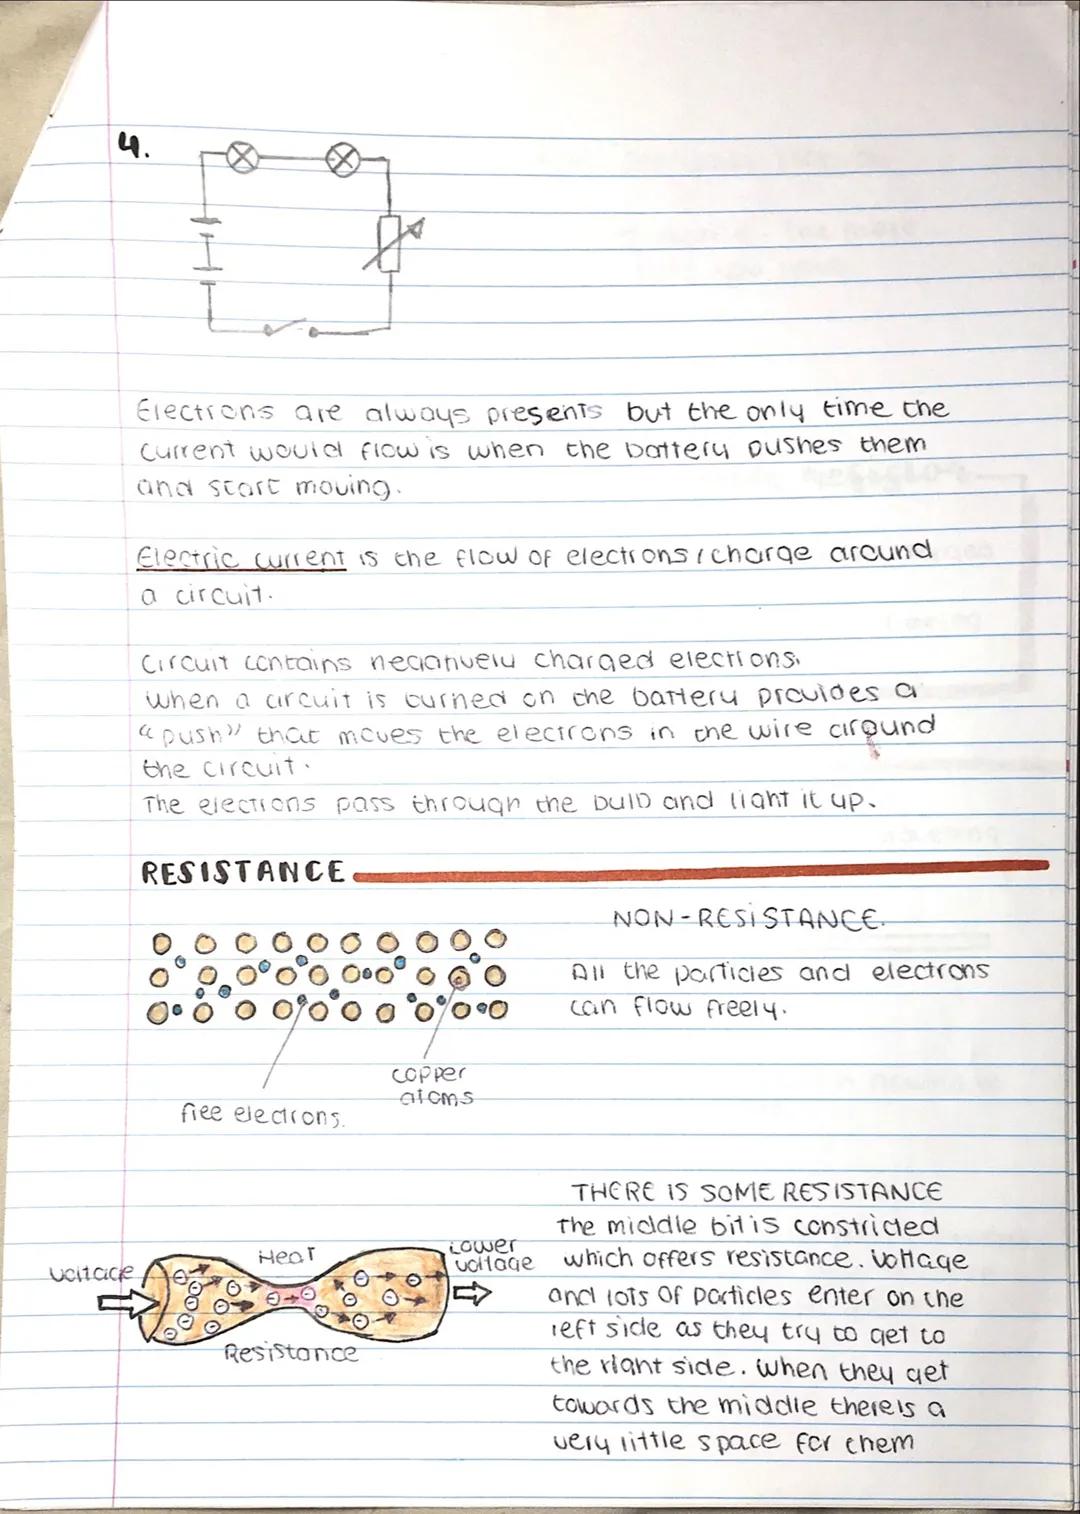 4.
Electrons are always presents but the only time the
current would flow is when the battery pushes them
and start moving.
Electric current is the flow of electrons / charge around
a circuit.
Circuit contains negatively charged electrons.
When a circuit is turned on the battery provides a
"push" that moves the electrons in the wire around
the circuit.
The electrons pass through the bulb and light it up.
RESISTANCE
NON-RESISTANCE.
All the particles and electrons
can flow freely.
copper
atoms
free electrons.
THERE IS SOME RESISTANCE
The middle bit is constricted
which offers resistance. Voltage
and lots of particles enter on the
left side as they try to get to
the right side. When they get
towards the middle there is a
very little space for them
Voltage
Heat
Lower
voltage
Resistance